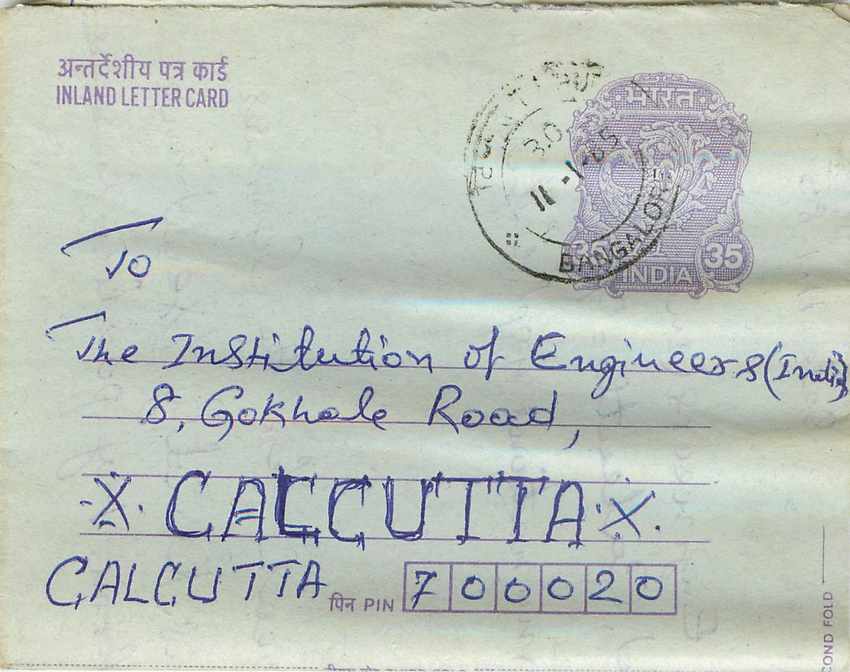 अन्तर्देशीय पत्र कार्ड
INLAND LETTER CARD
भारत
30
11-1-85
BANGALORE
35 35
INDIA
To
The Institution of Engineers (India)
8, Gokhale Road,
-X. CALCUTTA .X.
CALCUTTA
पिन PIN 700020
OND FOLD